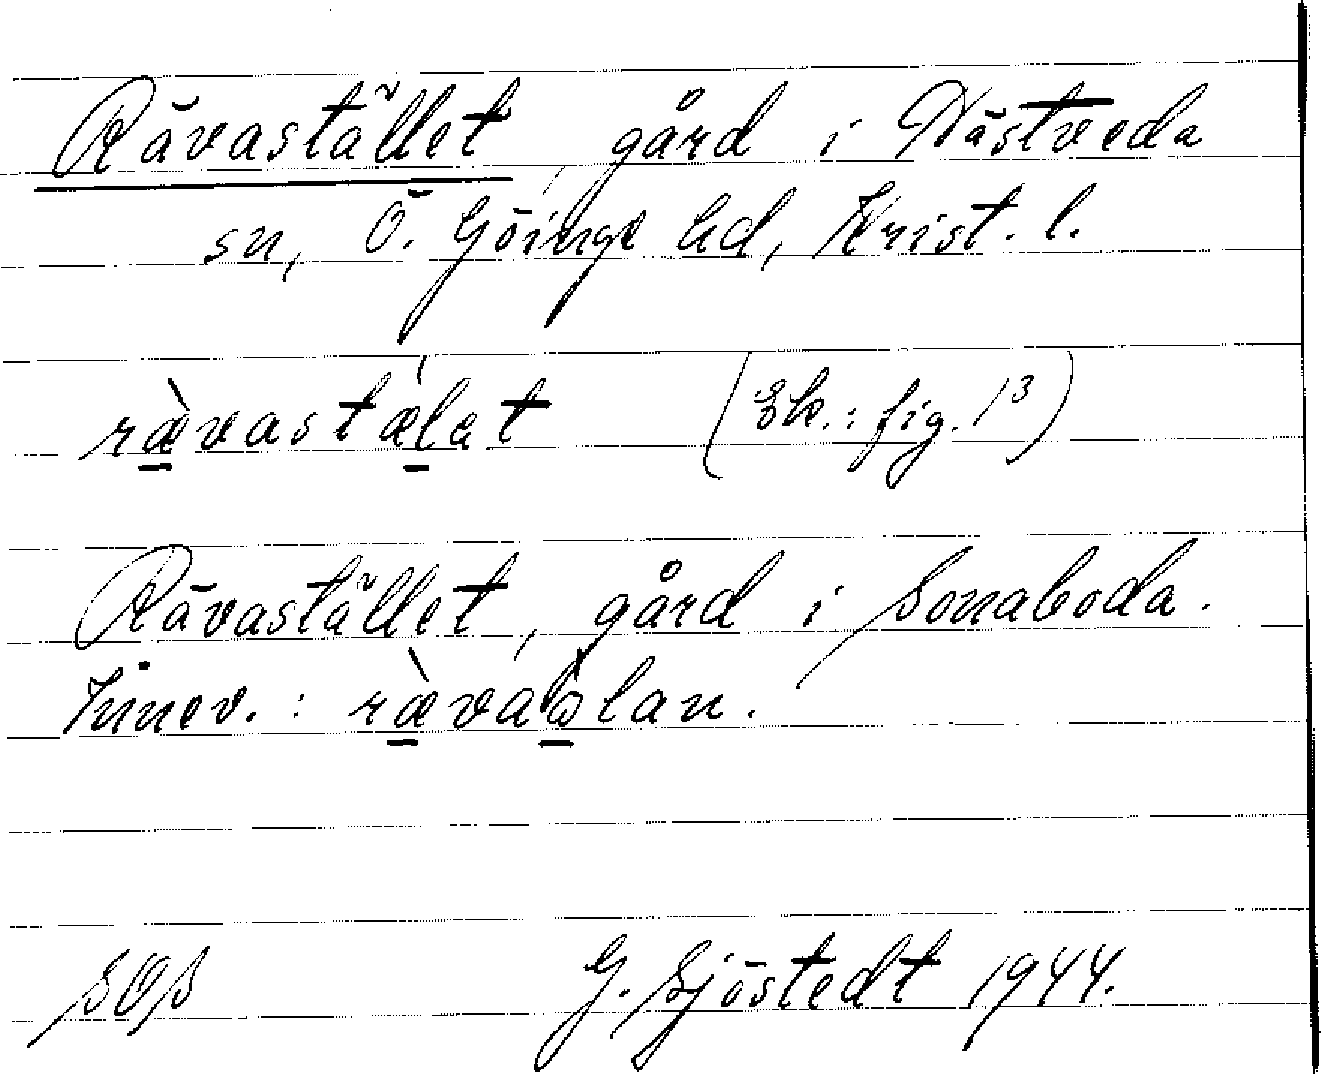 Rävastället, gård i Västveda
sn, Ö. Göinge hd, Krist. l.
rævastælet (Ek.: fig. 1³)
Rävastället, gård i Sonaboda.
Innev.: rævabolan.
SOS G. Sjöstedt 1944.